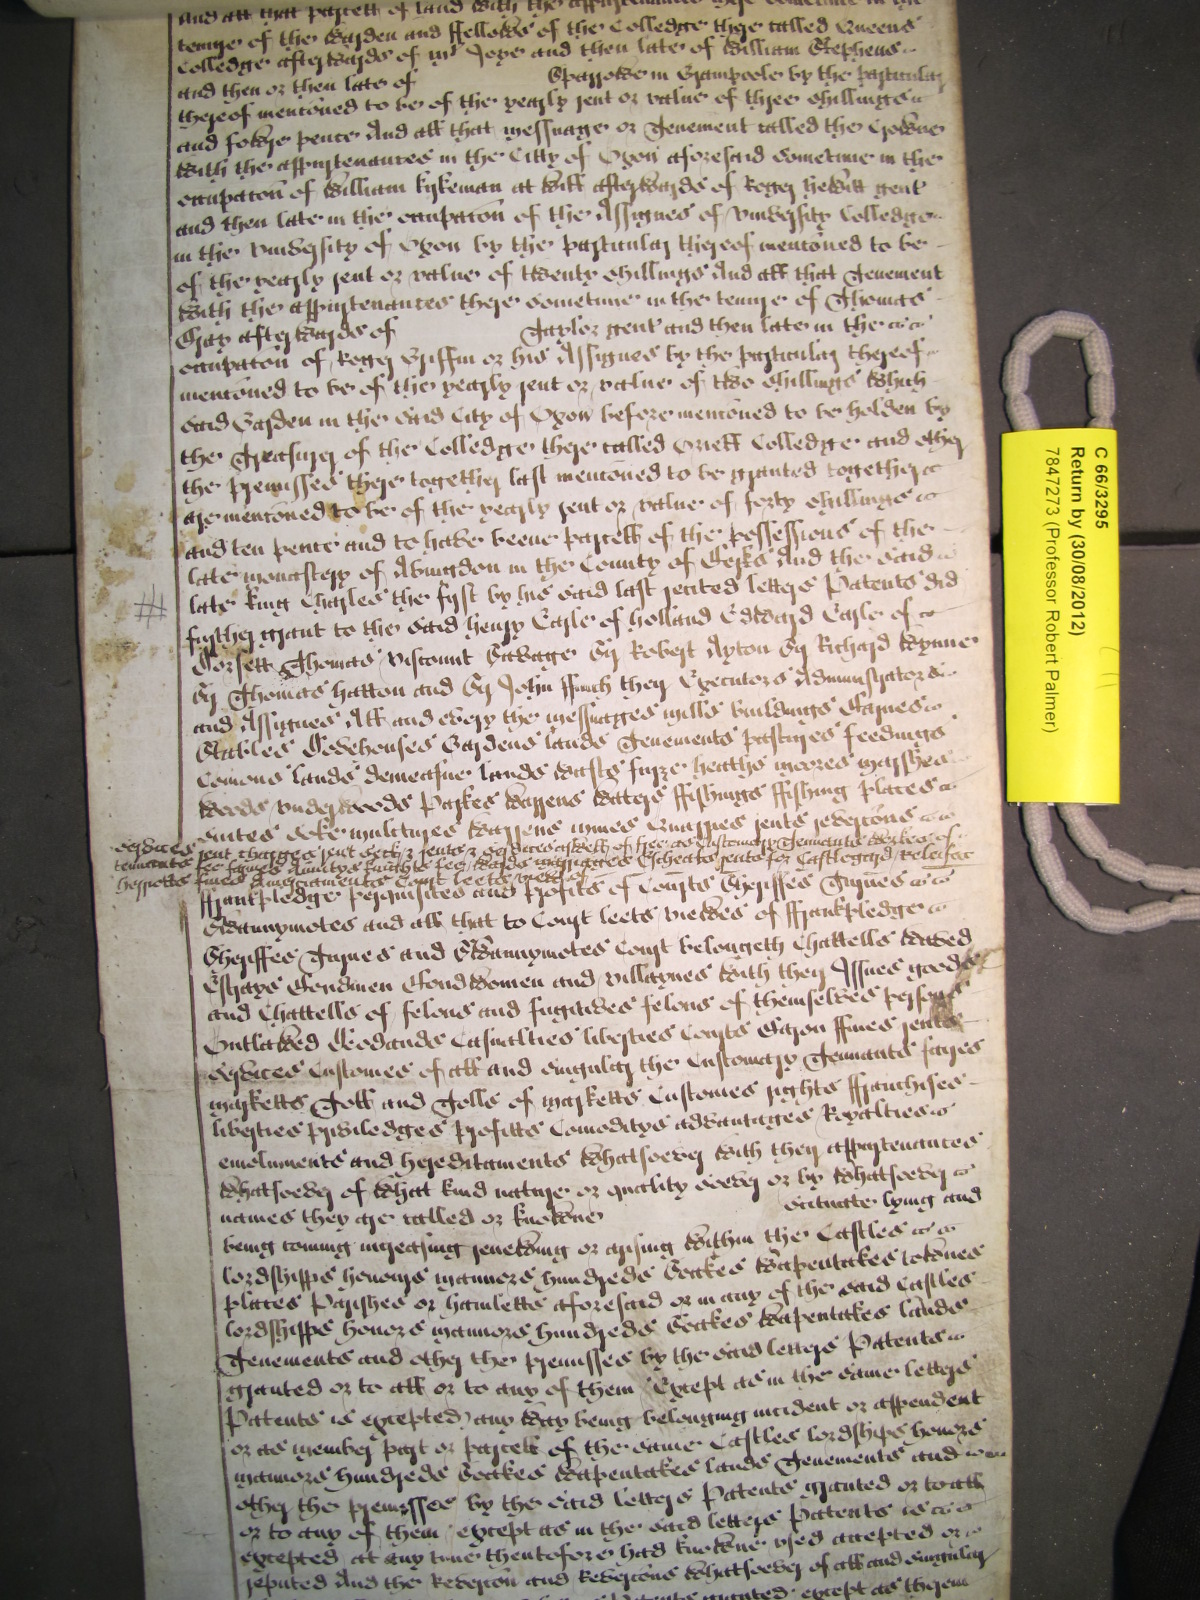 And all that parcell of land with the appurtenances there sometime in the
tenure of the Warden and ffellows of the Colledge there called Queens
Colledge afterwards of mr Joyce and then late of William Stephens
and then or then late of Sparrowe in Grampoole by the particular
thereof mentoned to be of the yearly rent or value of three shillings
and fowre pence And all that messuage or Tenement called the Crowne
with the appurtenances in the Citty of Oxon aforesaid sometime in the
occupacon of William Kykeman at will afterwards of Roger hewitt gent
and then late in the occupacon of the Assignes of Vniversity Colledge
in the Vniversity of Oxon by the particular thereof mentoned to be
of the yearly rent or value of twenty shillings And all that Tenement
with the appurtenances there sometime in the tenure of Thomas
Gray afterwards of Taylor gent and then late in the
occupacon of Roger Griffin or his Assignes by the particular thereof
mentoned to be of the yearly rent or value of two shillings which
said Garden in the said City of Oxon before mentoned to be holden by
the Treasurer of the Colledge there called Oriell Colledge and other
the premisses there together last mentoned to be granted together
are mentoned to be of the yearly rent or value of forty shillings
and ten pence and to have beene parcell of the possessions of the
late monastery of Abingdon in the County of Berks And the said
late King Charles the first by his said last recited letters Patents did
further grant to the said henry Earle of holland Edward Earle of
Dorsett Thomas Viscount Savage Sr Robert Ayton Sr Richard Wynne
Sr Thomas hatton and Sr John ffinch their Executors Administrators
and Assignes All and every the messuages mills buildings Barnes
Stables Dovehouses Gardens lands Tenements pastures feedings
Comons lands demeasne lands wasts furze heaths moores marshes
woods vnderwoods Parkes warrens waters ffishings ffishing places
suites soke multures warrens mines Quarries rents revercons
services rent charges rent seck & rents & services aswell of free as Customary Tennants workes of
tennants fee farmes Annuitys knights fees wards marriages Escheats rents for Castlegard releifes
herriotts fines Amerciaments Court leets view of
ffrankpledge perquisites and profits of Courts Sheriffes Turnes
Swannymotes and all that to Court leets viewes of ffrankpledge
Sheriffes Turnes and Swannymotes Court belongeth Chattells waved
Estrays Bondmen Bondwomen and villaynes with their Issues goods
and Chattells of felons and fugitives felons of themselves persons
Outlawed Deodands Casualties liberties Courts Baron ffines rents
services Customes of all and singular the Customary Tennants fayres
marketts Toll and Tolls of marketts Customes rights ffranchises
liberties priviledges profitts Comoditys advantages Royalties
emoluments and hereditaments whatsoever with their appurtenances
whatsoever of what kind nature or quality soever or by whatsoever
names they are called or knowne scituate lying and
being coming increasing renewing or arising within the Castles
lordshipps honors mannors hundreds Soakes wapentakes townes
places Parishes or hamletts aforesaid or in any of the said Castles
lordshipps honors mannors hundreds Soakes wapentakes lands
Tenements and other the premisses by the said letters Patents
granted or to all or to any of them (Except as in the same letters
Patents is excepted) any way being belonging incident or appendent
or as member part or parcell of the same Castles lordships honors
mannors hundreds Soakes wapentakes lands Tenements and
other the premisses by the said letters Patents granted or to all
or to any of them (except as in the said letters Patents is
excepted) at any time thentofore had knowne used accepted or
reputed And the Revercon and Revercons whatsoever of all and singular
Patents granted except as therein
C 66/3295
Return by (30/08/2012)
7847273 (Professor Robert Palmer)